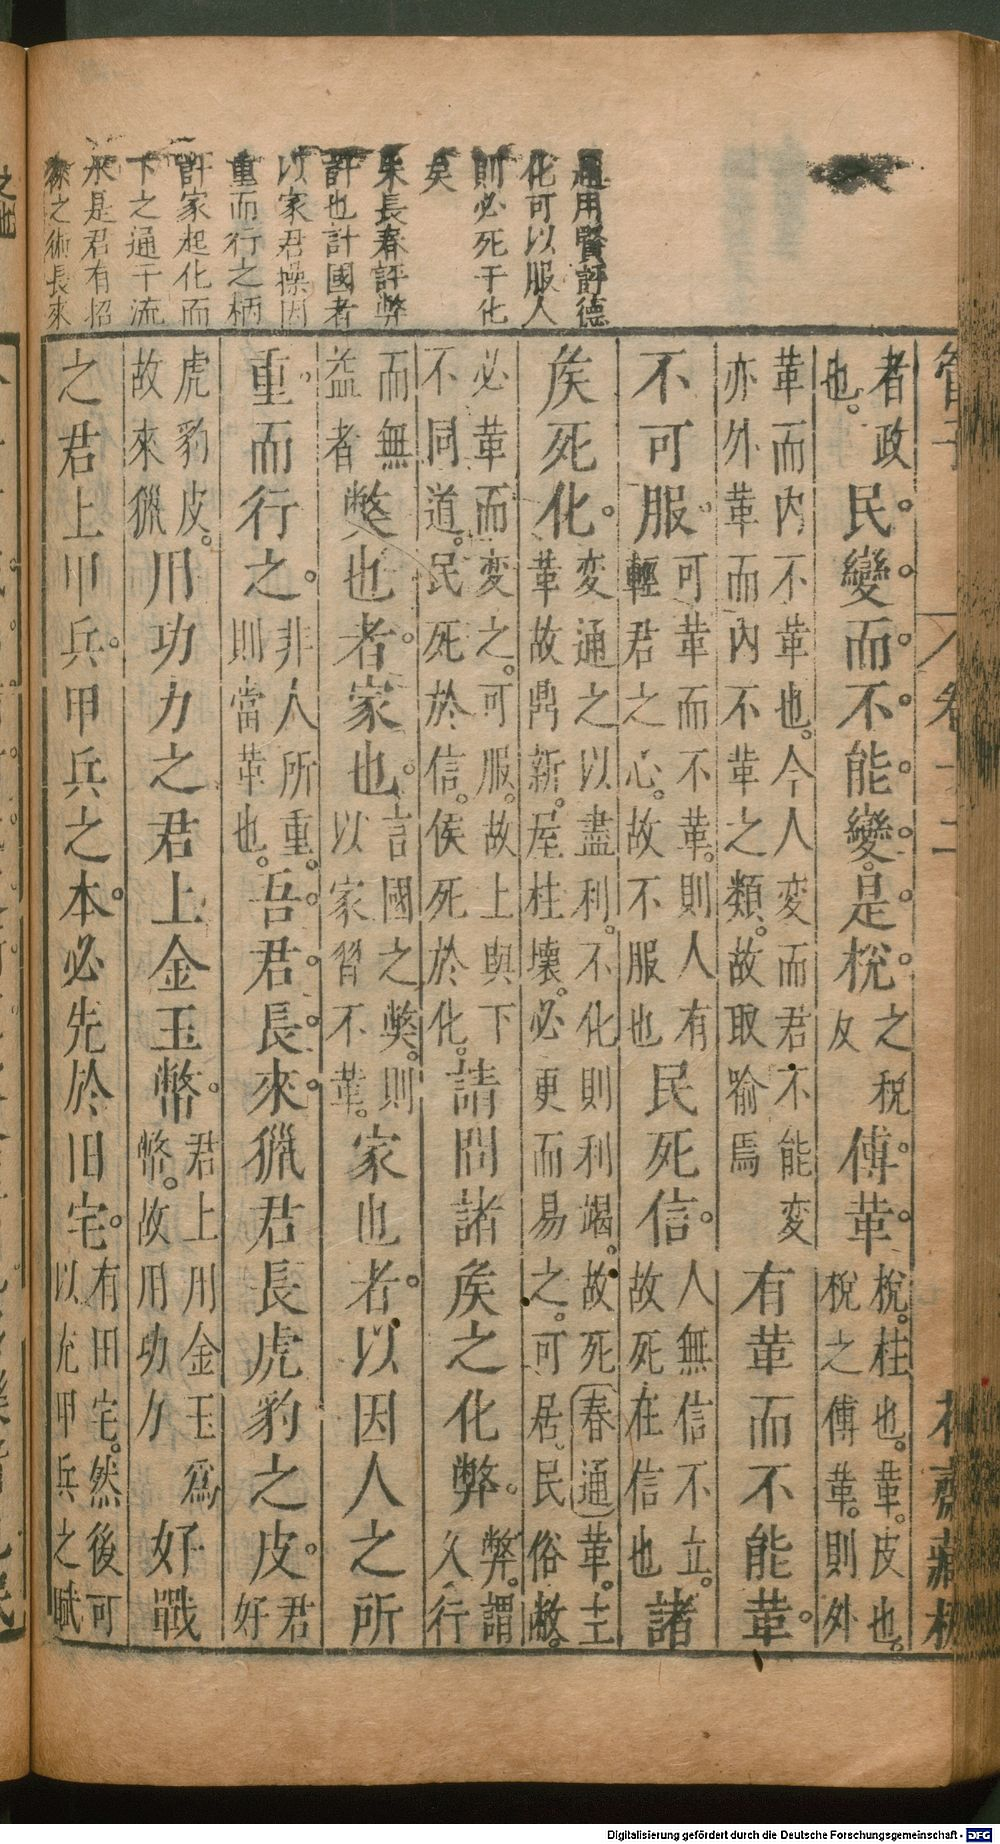 管子 卷十二 花齋藏板
通用賢評德
化可以服人
則必死于化
矣
朱長春評弊
許也計國者
以家君操因
重而行之柄
許家起化而
下之通于流
水是君有招
徠之術長來
者政也。民。變。而。不。能。變。是。梲。之稅反傅。革。梲。柱也。革。皮也。梲之傅革。則外
革而內不革也。今人変而君不能変亦外革而內不革之類。故取喻焉有革而不能革。
不可服。可革而不革。則人有輕君之心。故不服也民死信。人無信不立。故死在信也諸
矦死化。変通之以盡利。不化則利竭。故死春通革。主革故鼎新。屋柱壞。必更而易之。可居。民俗敝。
必革而変之。可服。故上與下不同道。民死於信。侯死於化。請問諸矦之化弊。弊。謂久行
而無益者獘也者。家也。言國之獘。則以家習不革。家也者。以因人之所
重。而行之。非人所重。則當革也。吾。君。長。來。獵君長虎豹之皮。君好
虎豹皮。故來獵用功力之君上金玉幣。君上用金玉爲幣。故用功力好戰
之君上甲兵。甲兵之本。必先於田宅。有田宅。然後可以充甲兵之賦
之也
Digitalisierung gefördert durch die Deutsche Forschungsgemeinschaft - DFG